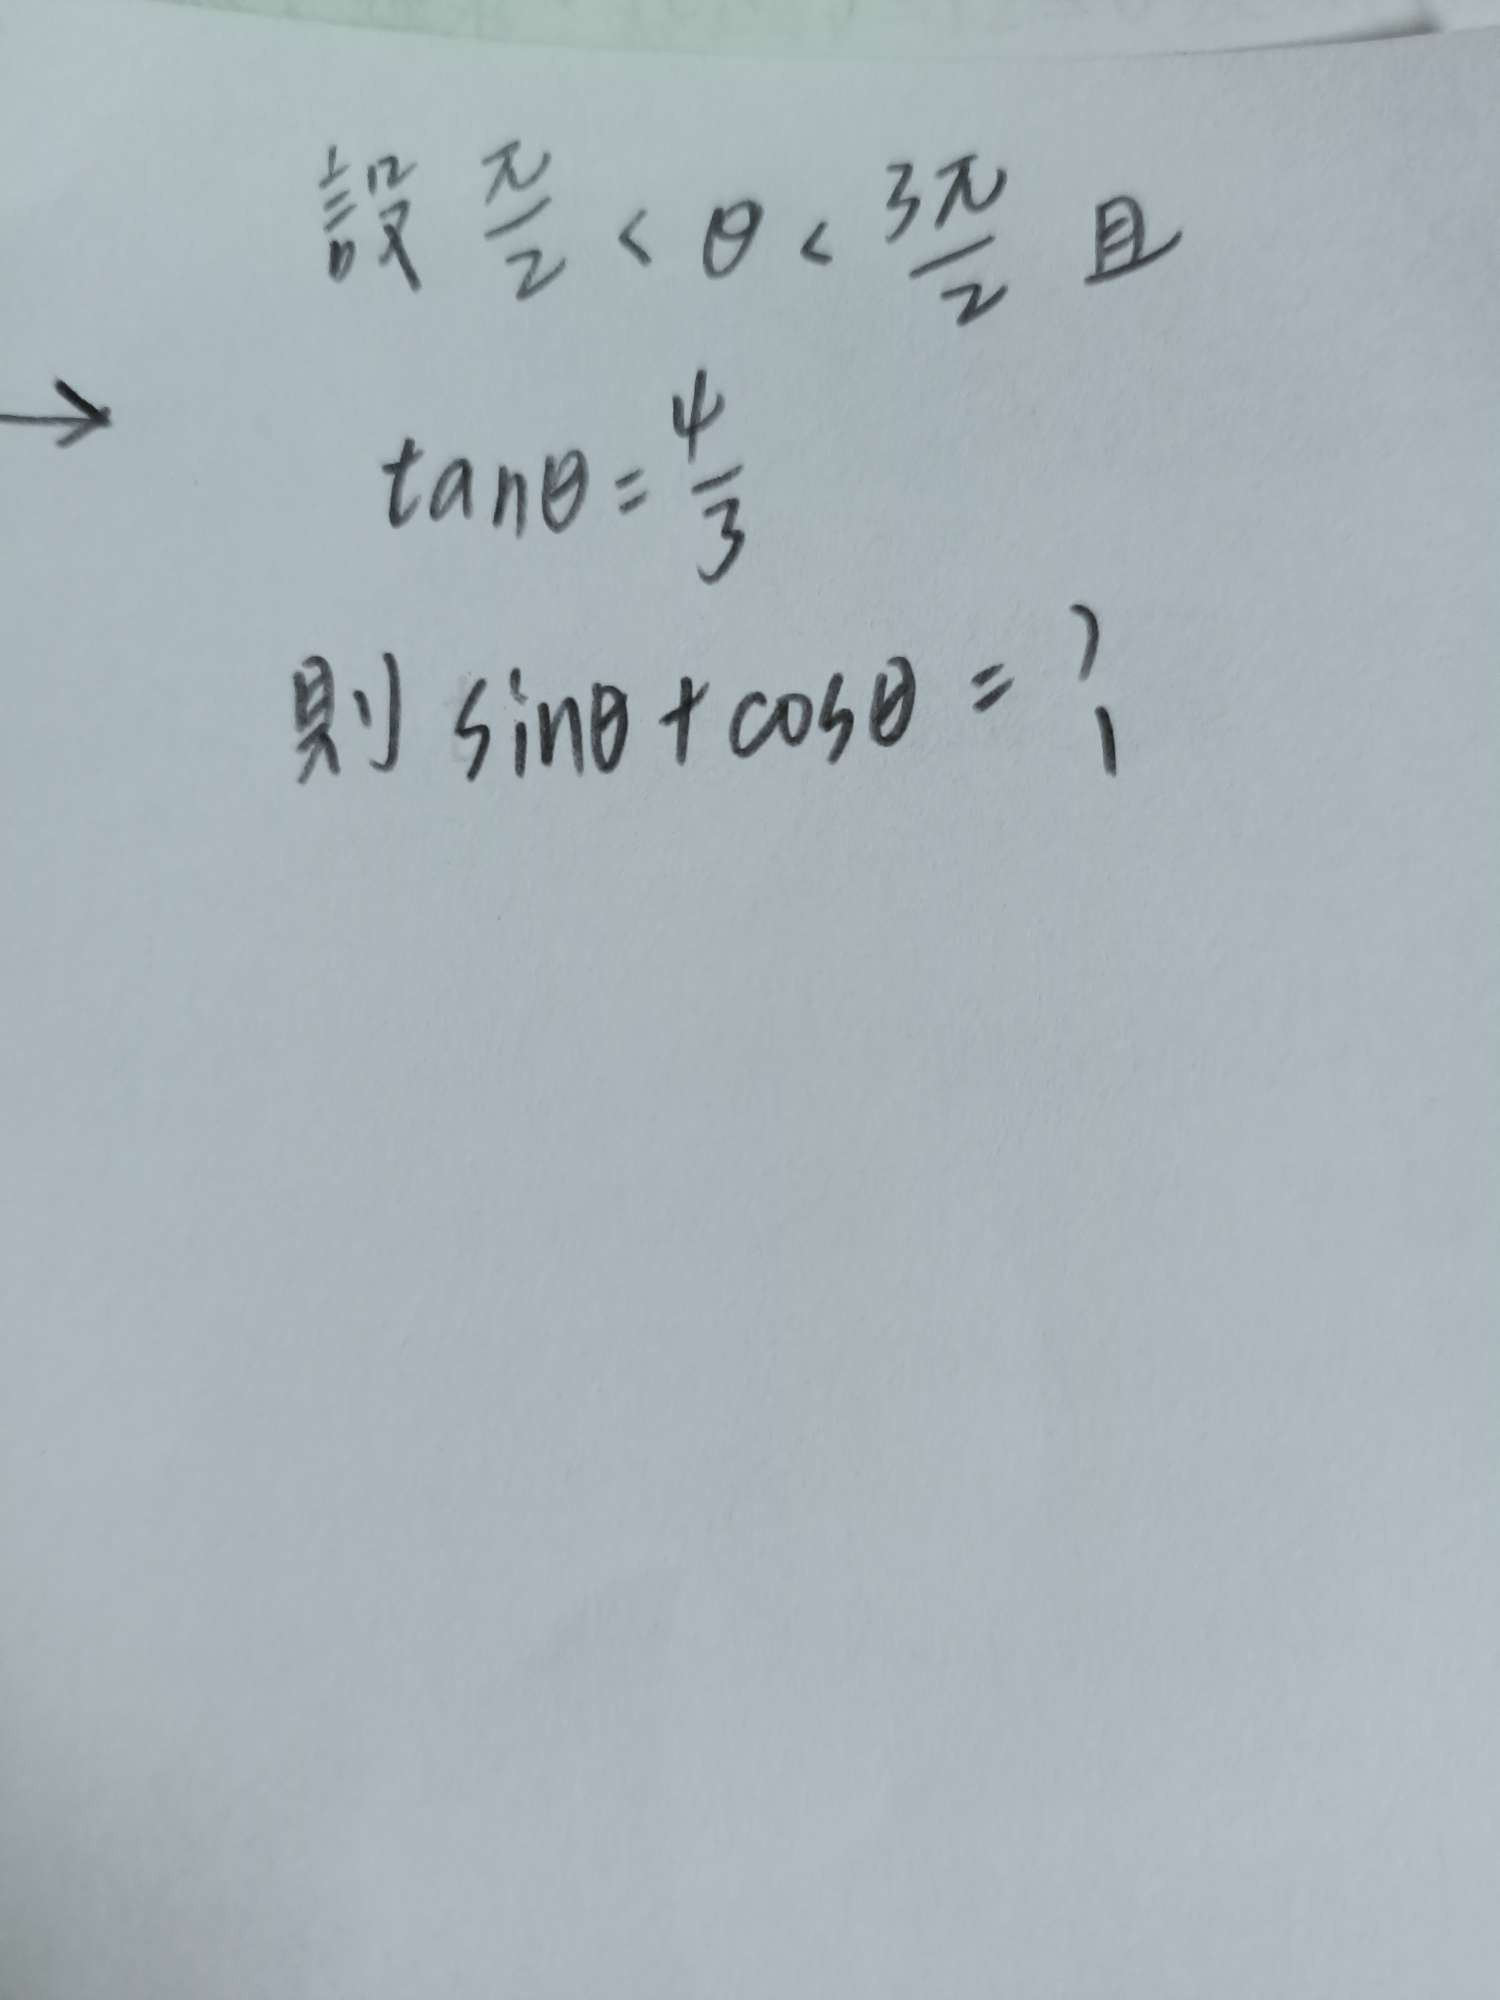 設 π/2 < θ < 3π/2 且
→ tanθ = 4/3
則 sinθ + cosθ = ?